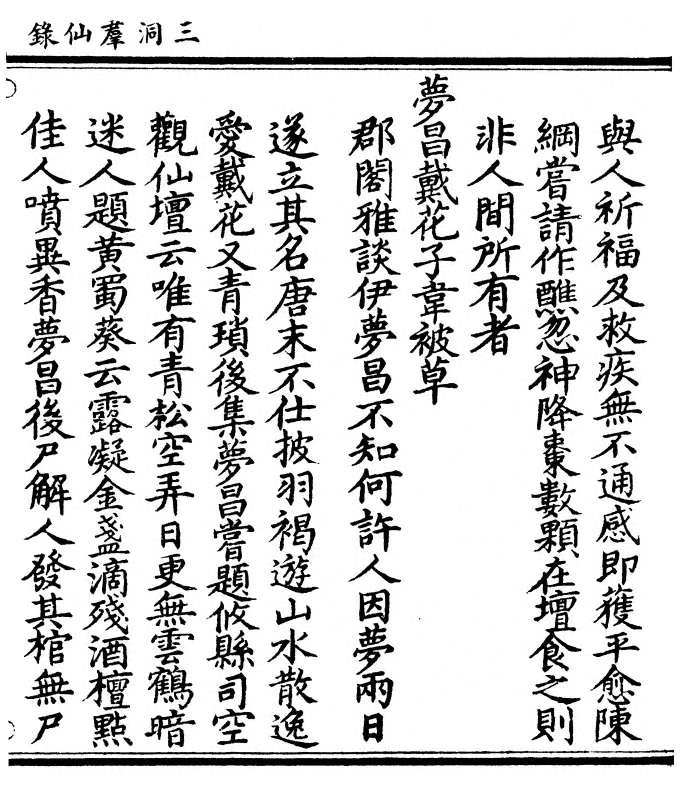 三洞羣仙錄
與人祈福及救疾無不通感即獲平愈陳
綱嘗請作醮忽神降棗數顆在壇食之則
非人間所有者
夢昌戴花子韋被草
郡閣雅談伊夢昌不知何許人因夢兩日
遂立其名唐末不仕披羽褐遊山水散逸
愛戴花又青瑣後集夢昌嘗題攸縣司空
觀仙壇云唯有青松空弄日更無雲鶴暗
迷人題黃蜀葵云露凝金盞滴殘酒檀點
佳人噴異香夢昌後尸解人發其棺無尸